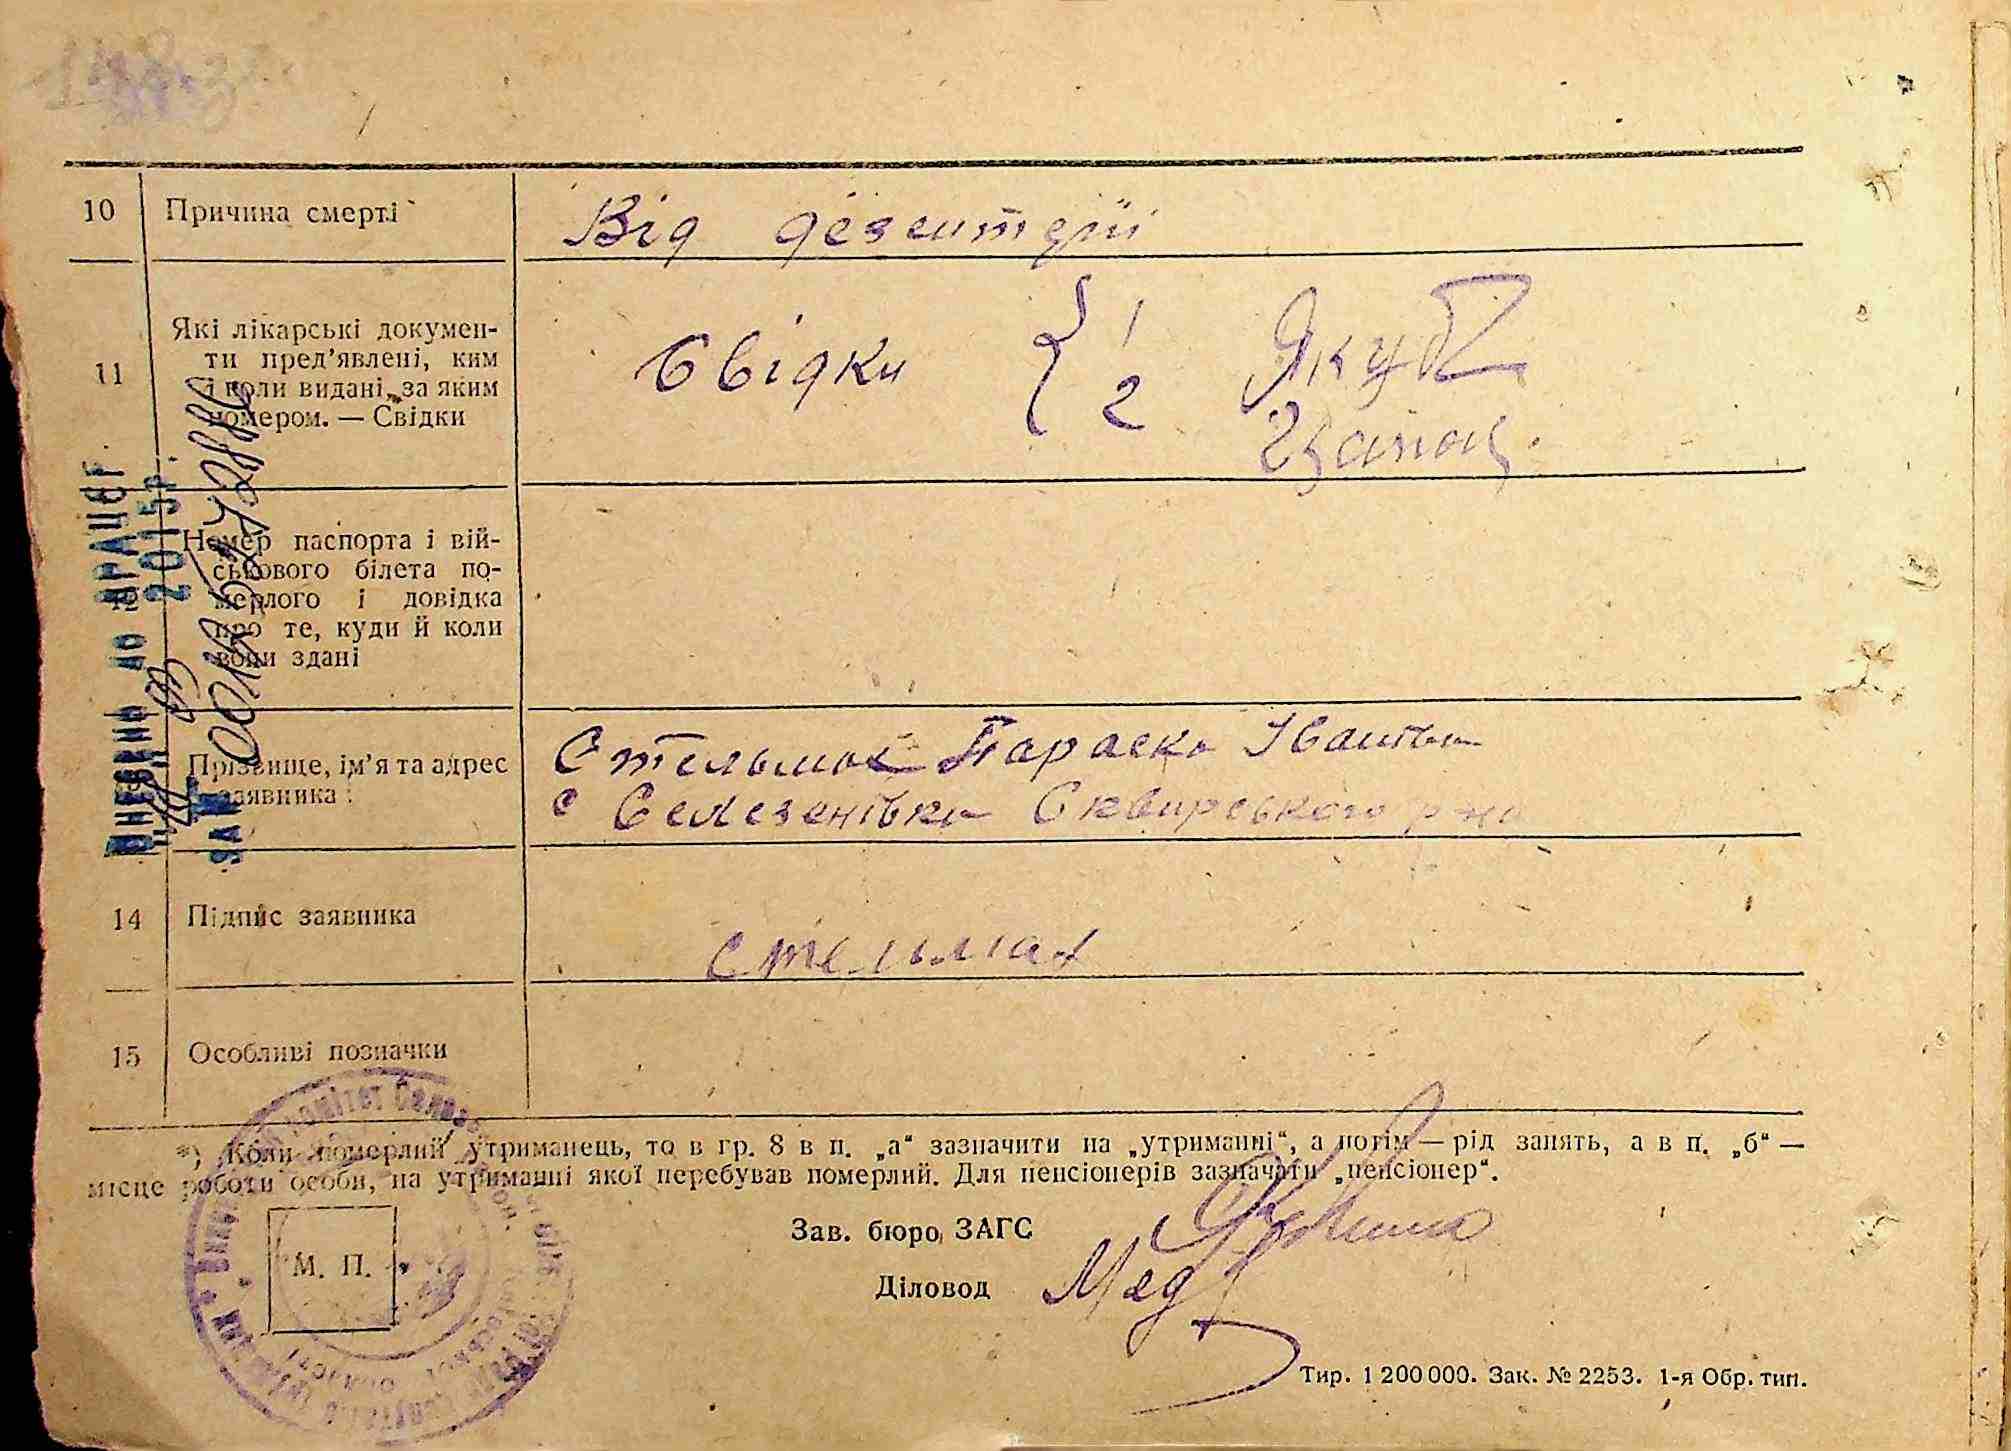 10 Причина смерті Від дезентерії
11 Які лікарські докумен-
ти пред’явлені, ким
і коли видані, за яким
номером. — Свідки
Свідки { 1 Якуб
2 Цапок
Номер паспорта і вій-
ськового білета по-
мерлого і довідка
про те, куди й коли
вони здані
Прізвище, ім’я та адрес
заявника
Стельмах Параска Іванівна
с Селезенівка Сквирського р-на
14 Підпис заявника
Стельмах
15 Особливі позначки
*) Коли померлий утриманець, то в гр. 8 в п. „а“ зазначити на „утриманні“, а потім — рід занять, а в п. „б“ —
місце роботи особи, на утриманні якої перебував померлий. Для пенсіонерів зазначати „пенсіонер“.
Зав. бюро ЗАГС
М. П.
Діловод Мед
Тир. 1 200 000. Зак. № 2253. 1-я Обр. тип.
Внесено до ДРАЦСГ
2015р.
за №